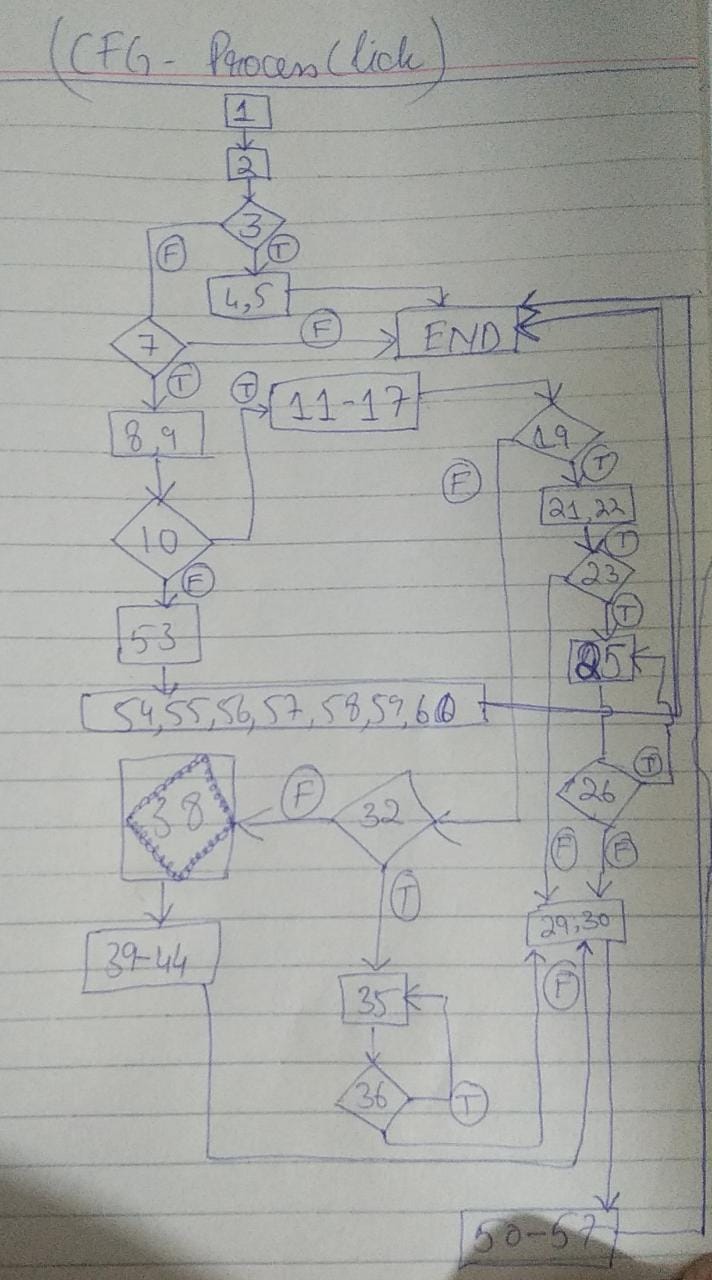 (CFG - Process Click)
1
2
3
F
T
4,5
7
F
END
T
T
11-17
8,9
19
F
T
21,22
10
T
23
F
T
53
25
54,55,56,57,58,59,60
T
26
F
38
32
F
F
T
29,30
39-44
F
35
36
T
50-57